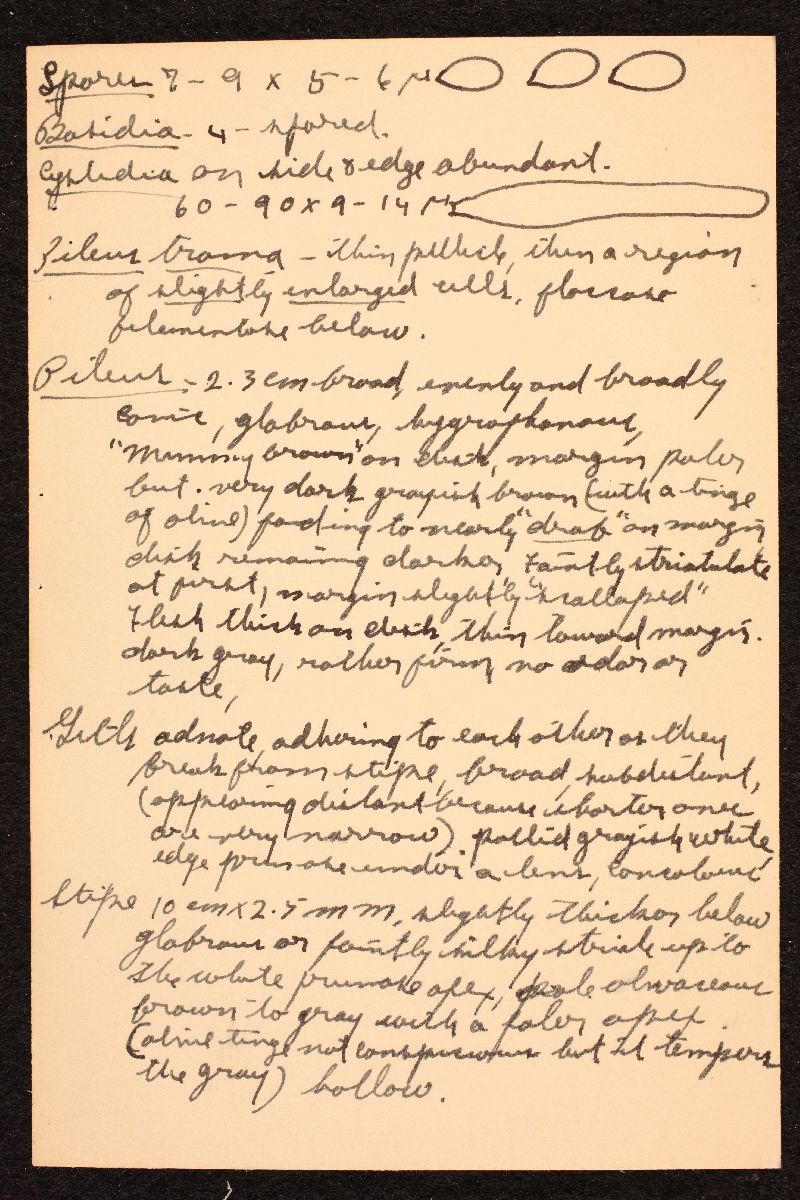 Spores 7 - 9 x 5 - 6 μ
Basidia - 4 - spored.
Cystidia on side & edge abundant.
60 - 90 x 9 - 14 μ
Pileus trama - thin pellicle, then a region
of slightly enlarged cells, floccose
filamentose below.
Pileus - 2.3 cm broad, evenly and broadly
conic, glabrous, hygrophanous,
"mummy brown" on disk, margin paler
but very dark grayish brown (with a tinge
of olive) fading to nearly "drab" on margin
disk remaining darker, faintly striatulate
at first, margin slightly "scalloped"
Flesh thick on disk, thin toward margin.
dark gray, rather firm, no odor or
taste,
Gills adnate, adhering to each other as they
break from stipe, broad, subdistant,
(appearing distant because shorter ones
are very narrow) pallid grayish white,
edge pruinose under a lens, concolorous
Stipe 10 cm x 2.5 mm, slightly thicker below
glabrous or faintly silky striate up to
the white pruinose apex, pale olivaceous
brown to gray with a paler apex.
(olive tinge not conspicuous but it tempers
the gray) hollow.